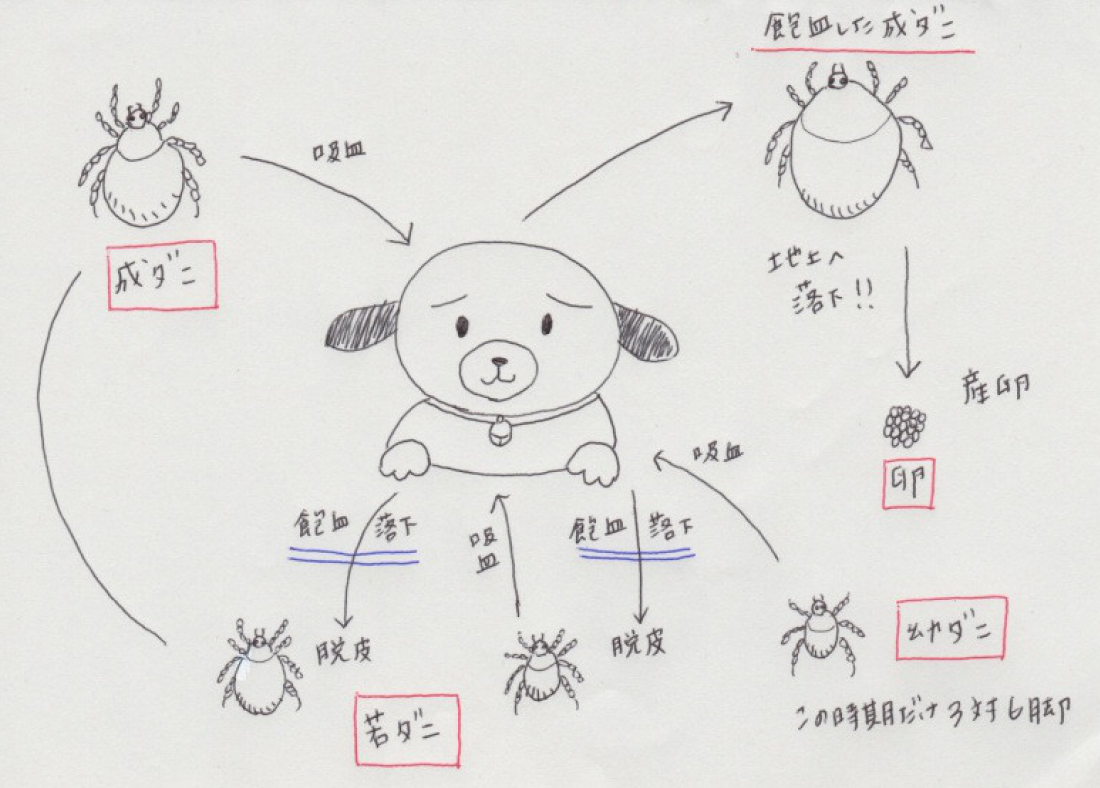 飽血した成ダニ
吸血
成ダニ
地上へ
落下!!
産卵
卵
吸血
飽血 落下
吸血
飽血 落下
幼ダニ
脱皮
脱皮
若ダニ
この時期だけ3対6脚